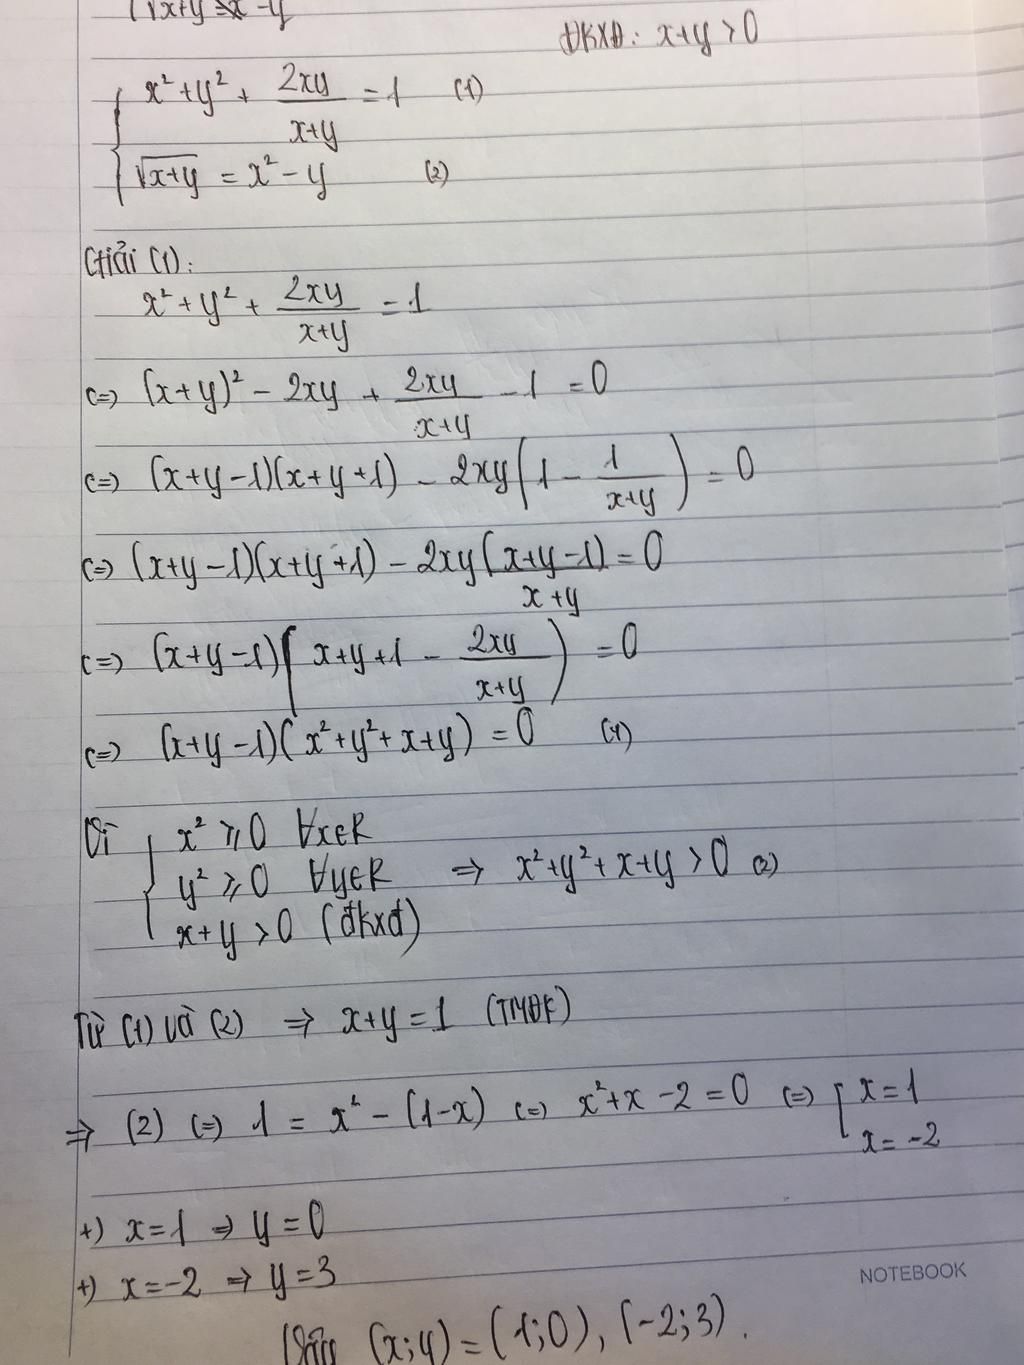 √x+y = x - y
ĐKXĐ: x+y > 0
{ x² + y² + 2xy/(x+y) = 1 (1)
{ √(x+y) = x² - y (2)
Giải (1):
x² + y² + 2xy/(x+y) = 1
<=> (x+y)² - 2xy + 2xy/(x+y) - 1 = 0
<=> (x+y-1)(x+y+1) - 2xy(1 - 1/(x+y)) = 0
<=> (x+y-1)(x+y+1) - 2xy(x+y-1)/(x+y) = 0
<=> (x+y-1)(x+y+1 - 2xy/(x+y)) = 0
<=> (x+y-1)(x²+y²+x+y) = 0 (1)
Vì { x² ≥ 0 ∀x∈R
{ y² ≥ 0 ∀y∈R => x²+y²+x+y > 0 (2)
{ x+y > 0 (đkxđ)
Từ (1) và (2) => x+y = 1 (TMĐK)
=> (2) <=> 1 = x² - (1-x) <=> x²+x-2 = 0 <=> [ x = 1
x = -2
+) x=1 => y=0
+) x=-2 => y=3
NOTEBOOK
Vậy (x;y) = (1;0), (-2;3).